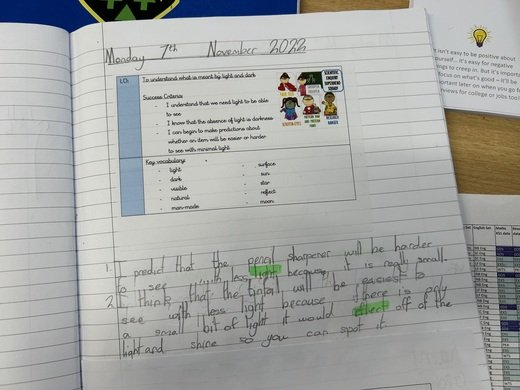 Monday 7th November 2022
LO: To understand what is meant by light and dark
Success Criteria:
- I understand that we need light to be able
to see
- I know that the absence of light is darkness
- I can begin to make predictions about
whether an item will be easier or harder
to see with minimal light
Key vocabulary:
- light
- dark
- visible
- natural
- man-made
- surface
- sun
- star
- reflect
- moon
1. I predict that the pencil sharpener will be harder
to see with less light because it is really small.
2. I think that the will be easiest to
see with less light because there is only
a small bit of light it would off of the
light and shine so you can spot it.
isn't easy to be positive about
it's easy for negative
ings to creep in. But it's importa
focus on what's good – it'll be
portant later on when you go for
rviews for college or jobs too!
English Set